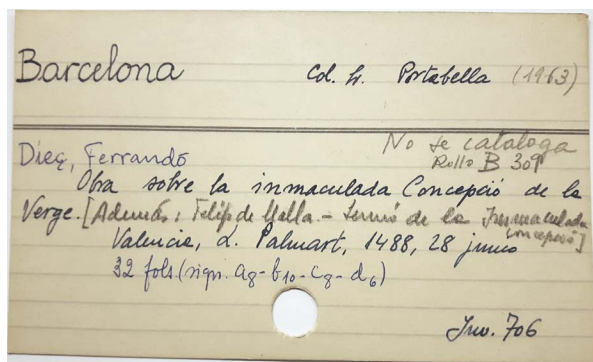 Barcelona Col. Sr. Portabella (1963)
No se cataloga
Rollo B 309
Dieç, Ferrando
Obra sobre la inmaculada Concepció de la
Verge. [Además: Felip de Malla. - Sermó de la Immaculada
Concepció]
Valencia, L. Palmart, 1488, 28 junio
32 fols. (sign. a8-b10-c8-d6)
Inv. 706